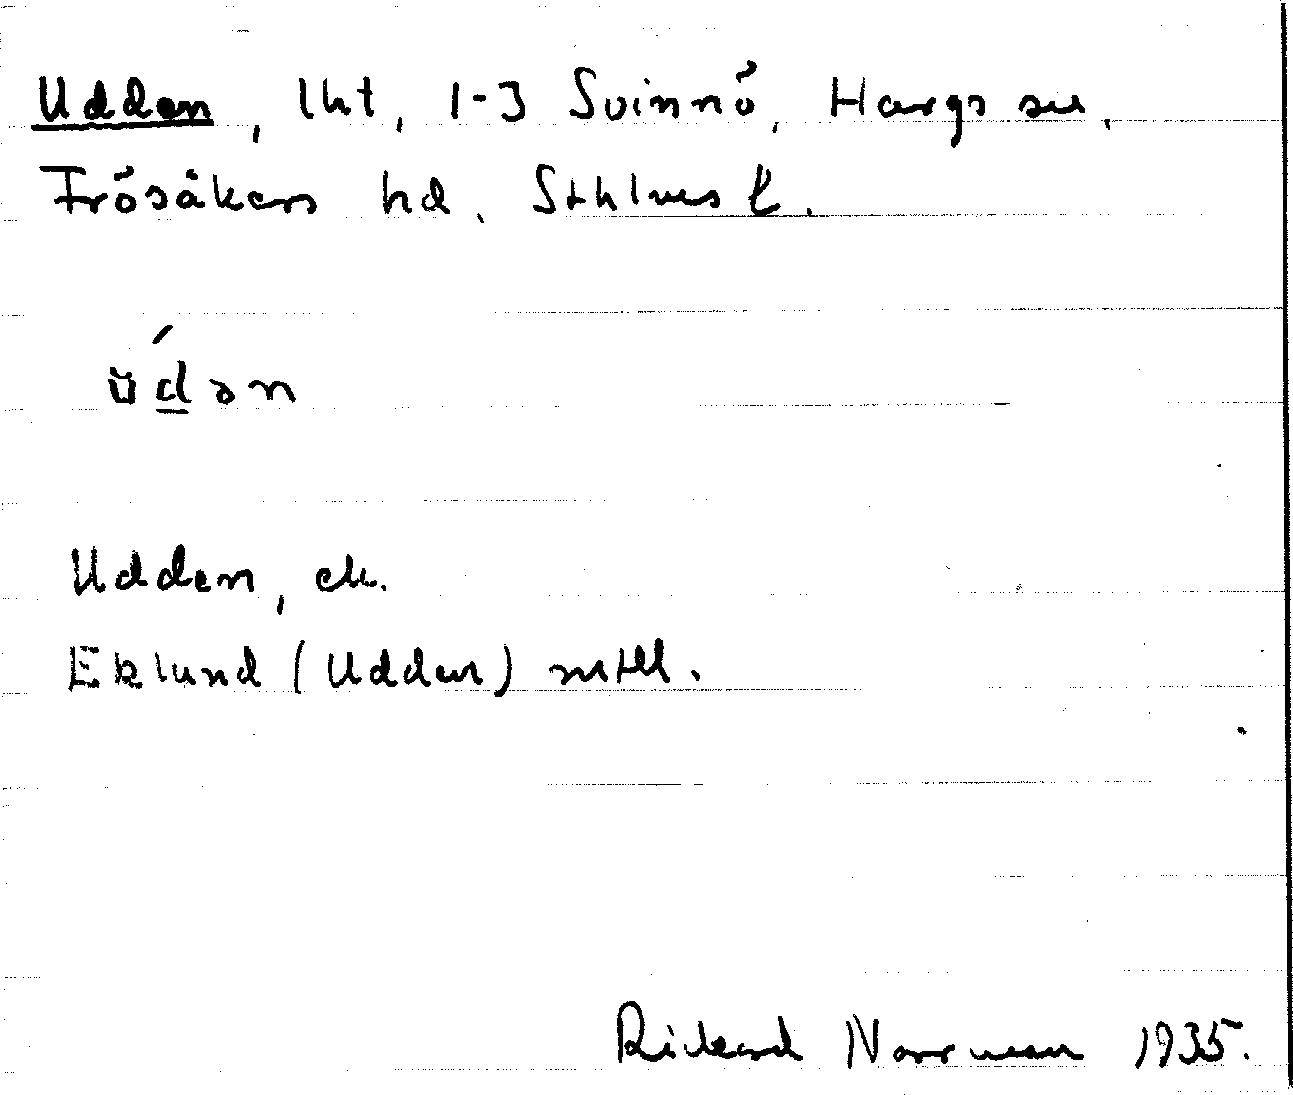 Udden, lht, 1-3 Svinnö, Hargs sn,
Frösåkers hd, Sthlms l.
ŭd́ən
Udden, ek.
Eklund (Udden) mtll.
Rickard Norrman 1935.